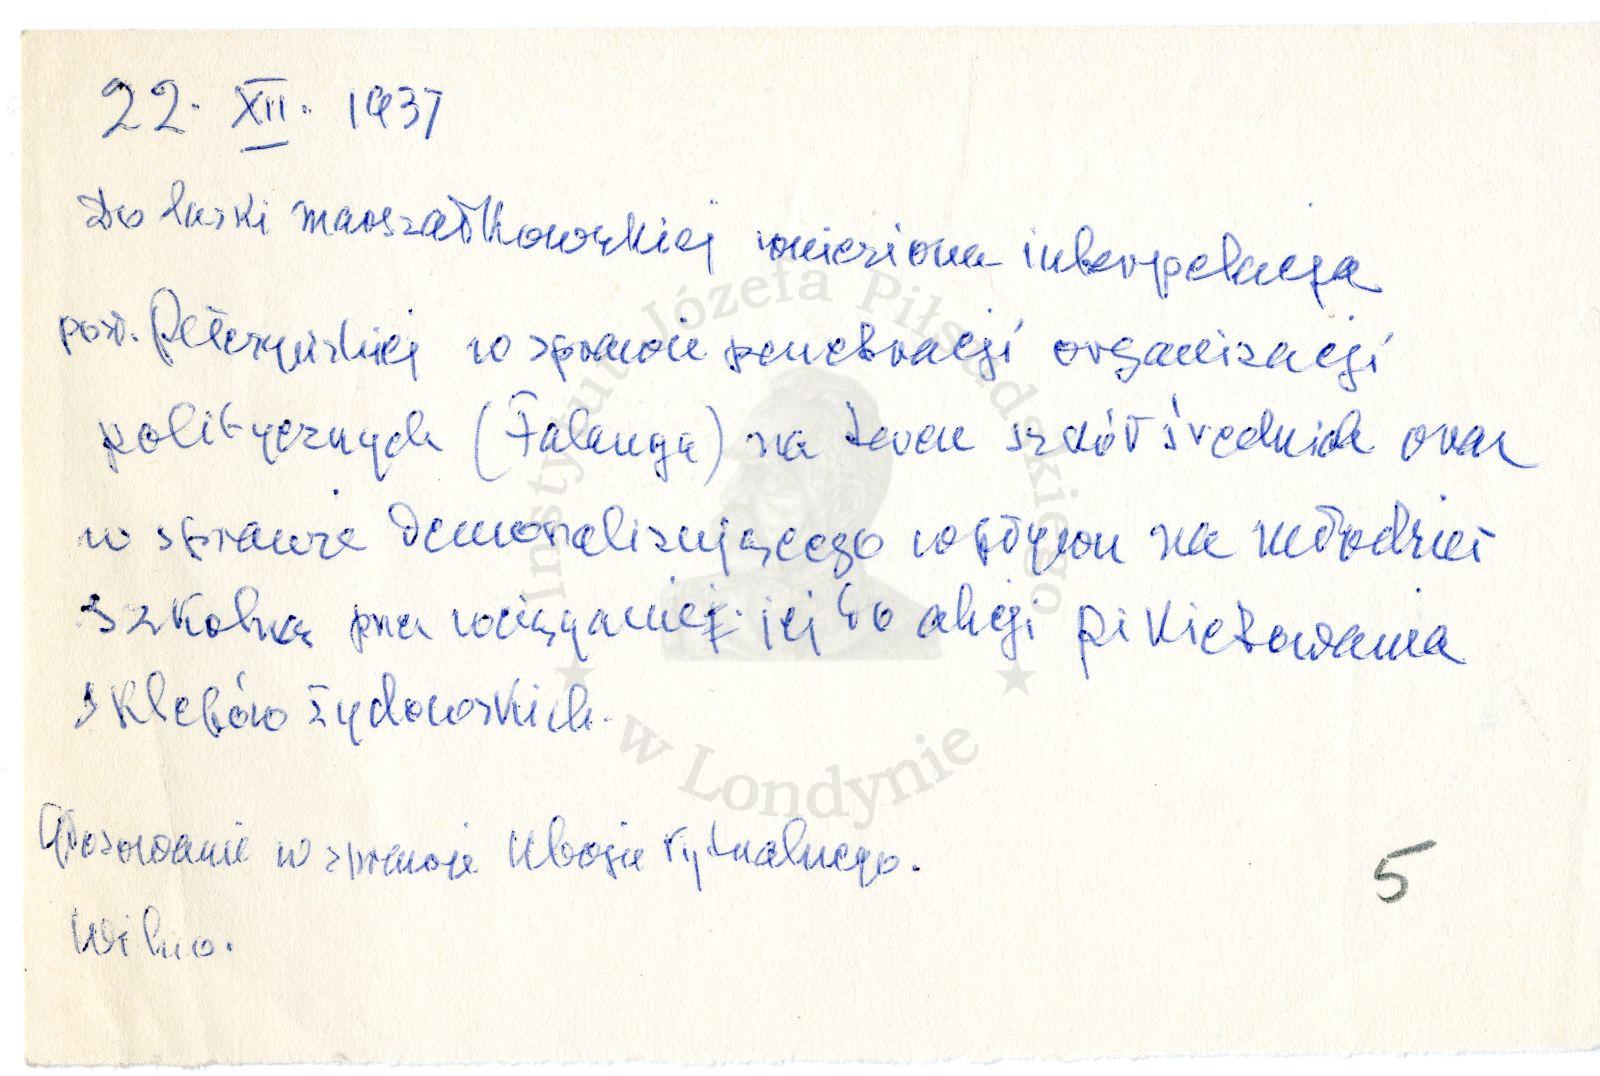 22. XII. 1937
Do laski marszałkowskiej wniesiona interpelacja
pos. Pełczyńskiej w sprawie penetracji organizacji
politycznych (Falanga) na teren szkół średnich oraz
w sprawie demoralizującego wpływu na młodzież
szkolną przez wciąganie jej do akcji pikietowania
sklepów żydowskich.
Głosowanie w sprawie uboju rytualnego.
Wilno.
5
Instytut Józefa Piłsudskiego
w Londynie